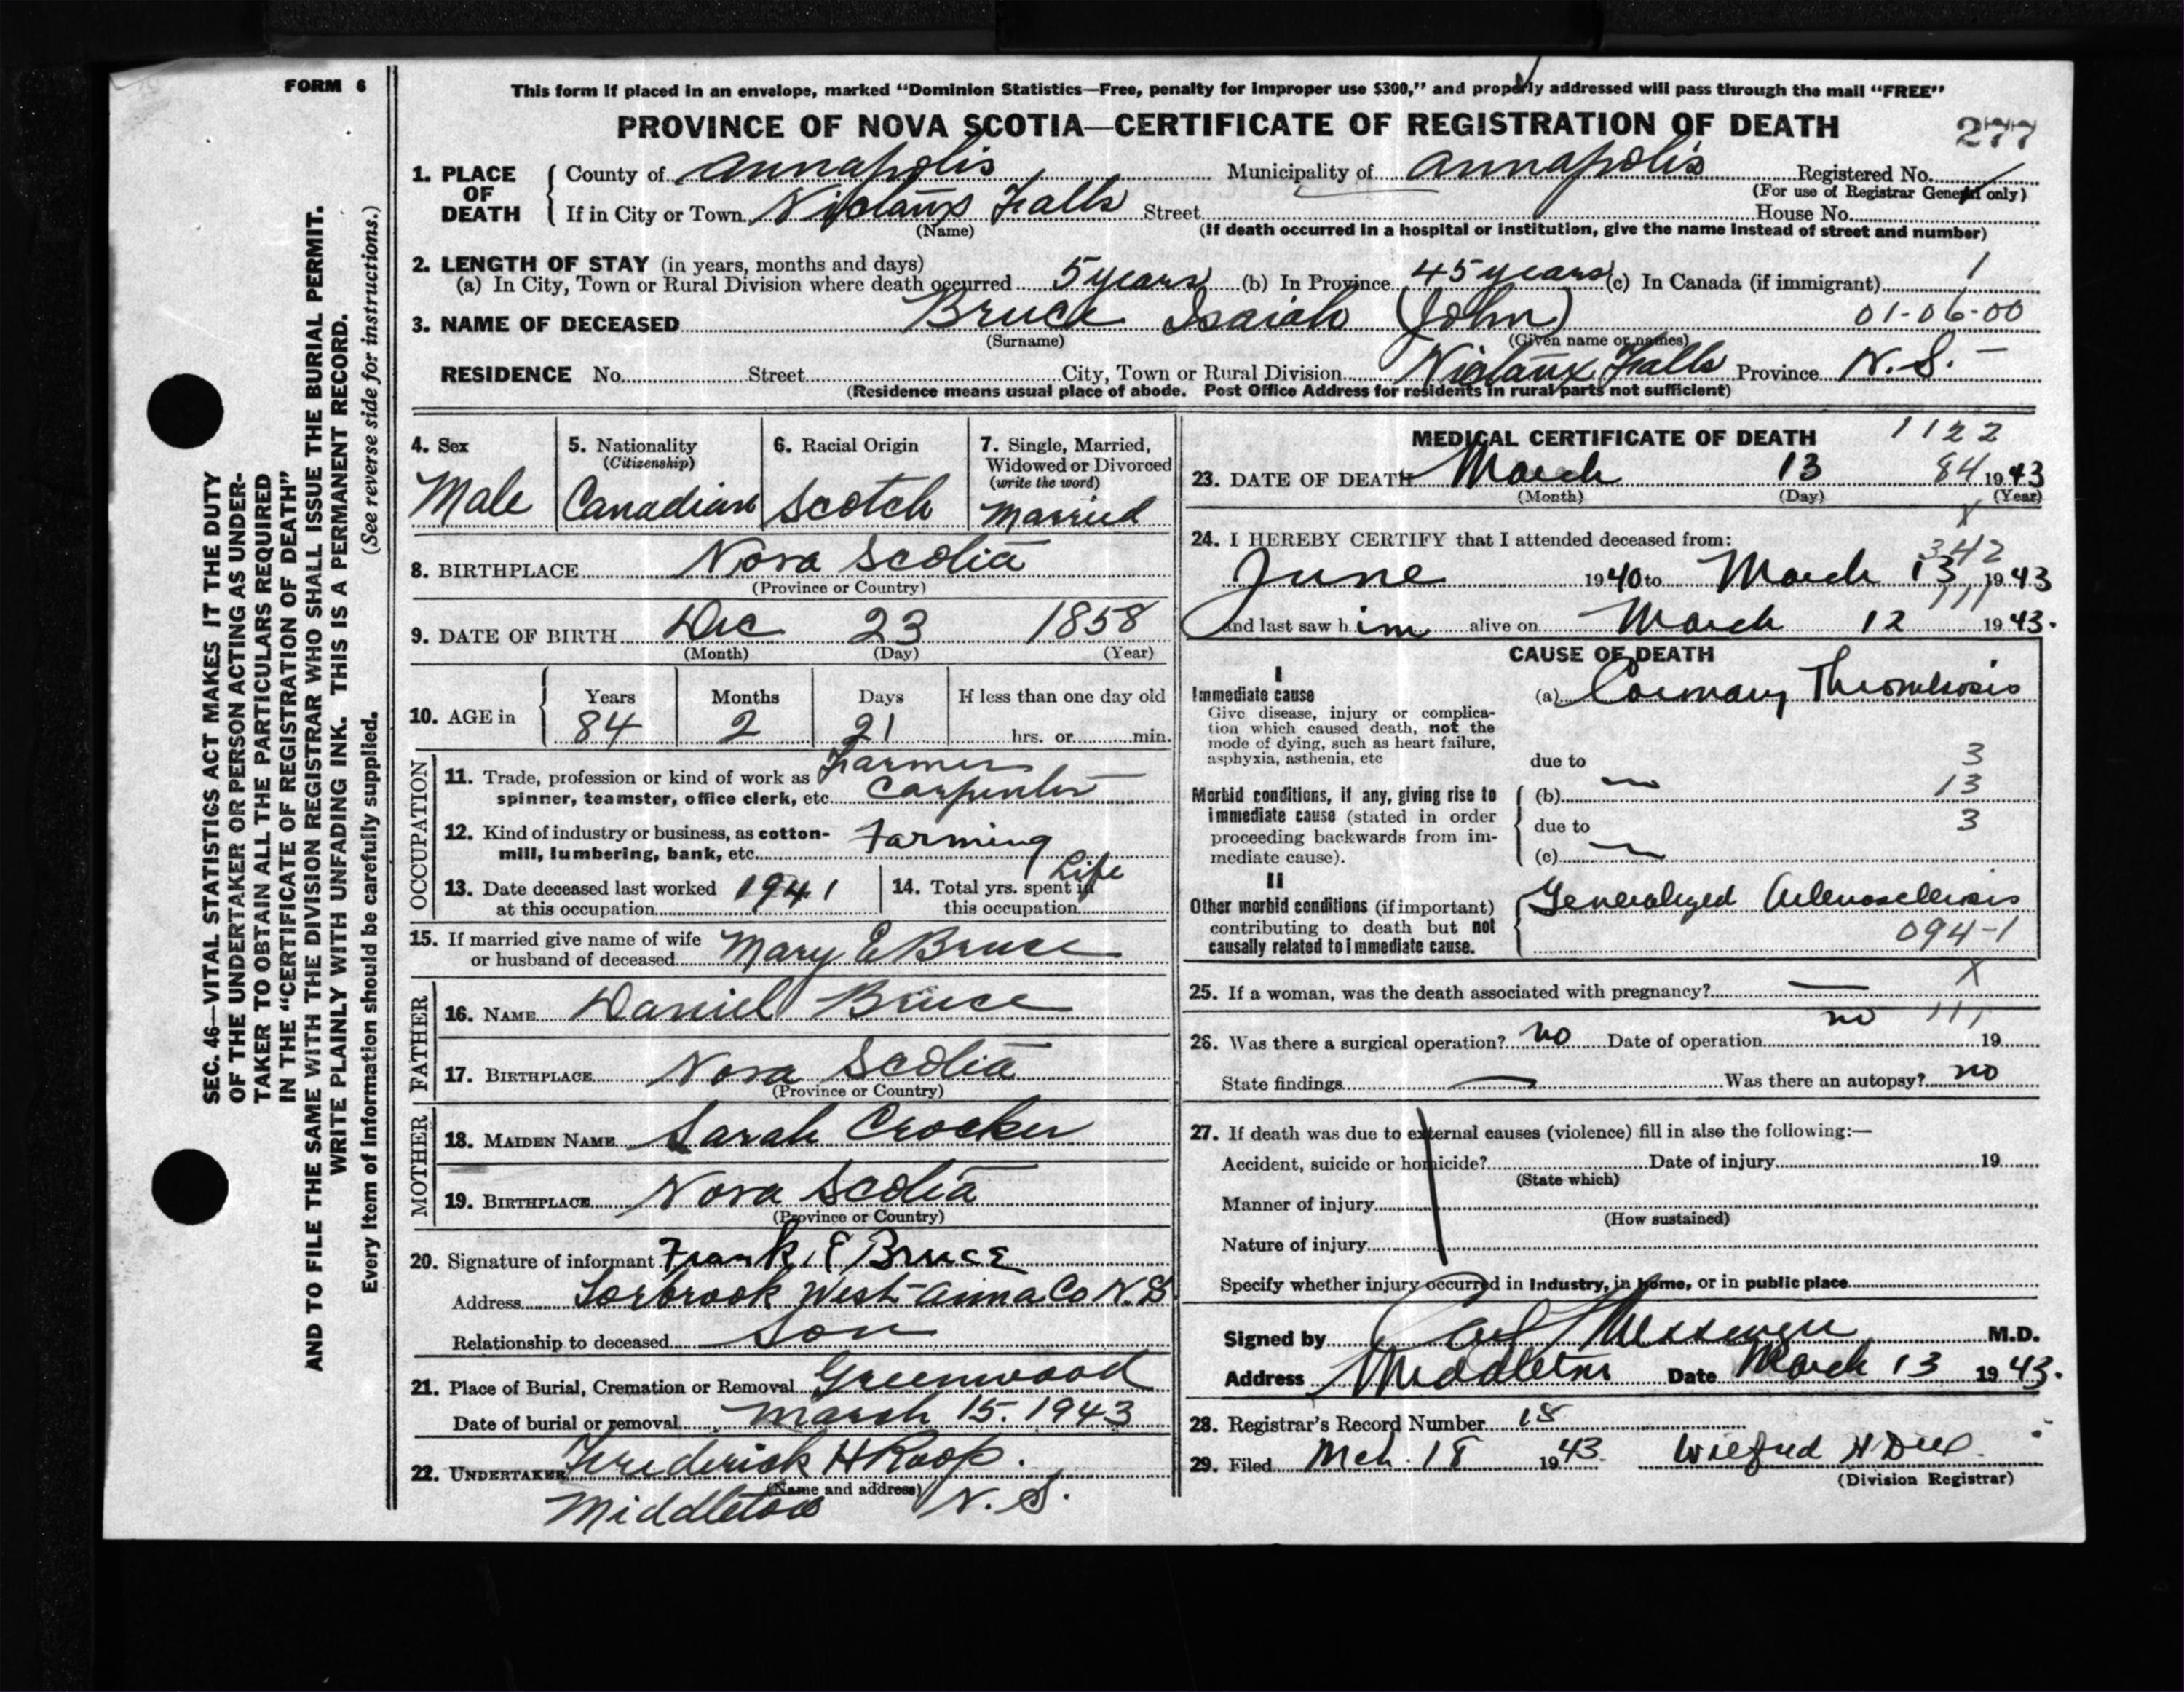 FORM 6
SEC. 46—VITAL STATISTICS ACT MAKES IT THE DUTY
OF THE UNDERTAKER OR PERSON ACTING AS UNDER-
TAKER TO OBTAIN ALL THE PARTICULARS REQUIRED
IN THE "CERTIFICATE OF REGISTRATION OF DEATH"
AND TO FILE THE SAME WITH THE DIVISION REGISTRAR WHO SHALL ISSUE THE BURIAL PERMIT.
WRITE PLAINLY WITH UNFADING INK. THIS IS A PERMANENT RECORD.
Every item of information should be carefully supplied. (See reverse side for instructions.)
This form if placed in an envelope, marked "Dominion Statistics—Free, penalty for improper use $300," and properly addressed will pass through the mail "FREE"
PROVINCE OF NOVA SCOTIA—CERTIFICATE OF REGISTRATION OF DEATH 277
1. PLACE OF DEATH County of Annapolis Municipality of Annapolis Registered No.
(For use of Registrar General only)
If in City or Town Nictaux Falls Street House No.
(Name) (If death occurred in a hospital or institution, give the name instead of street and number)
2. LENGTH OF STAY (in years, months and days)
(a) In City, Town or Rural Division where death occurred 5 years (b) In Province 45 years (c) In Canada (if immigrant) 1
3. NAME OF DECEASED Bruce Isaiah (John) 01-06-00
(Surname) (Given name or names)
RESIDENCE No. Street City, Town or Rural Division Nictaux Falls Province N.S.
(Residence means usual place of abode. Post Office Address for residents in rural parts not sufficient)
4. Sex Male
5. Nationality (Citizenship) Canadian
6. Racial Origin Scotch
7. Single, Married, Widowed or Divorced (write the word) Married
8. BIRTHPLACE Nova Scotia
(Province or Country)
9. DATE OF BIRTH Dec 23 1858
(Month) (Day) (Year)
10. AGE in Years 84 Months 2 Days 21 If less than one day old hrs. or min.
OCCUPATION
11. Trade, profession or kind of work as Farmer
spinner, teamster, office clerk, etc. Carpenter
12. Kind of industry or business, as cotton- Farming
mill, lumbering, bank, etc.
13. Date deceased last worked 1941
at this occupation
14. Total yrs. spent in Life
this occupation
15. If married give name of wife
or husband of deceased Mary E Bruce
FATHER
16. NAME Daniel Bruce
17. BIRTHPLACE Nova Scotia
(Province or Country)
MOTHER
18. MAIDEN NAME Sarah Crocker
19. BIRTHPLACE Nova Scotia
(Province or Country)
20. Signature of informant Frank E Bruce
Address Torbrook West Anna Co N.S
Relationship to deceased Son
21. Place of Burial, Cremation or Removal Greenwood
Date of burial or removal March 15. 1943
22. UNDERTAKER Frederick H Roop.
(Name and address)
Middleton N.S.
MEDICAL CERTIFICATE OF DEATH 1122
23. DATE OF DEATH March 13 84 1943
(Month) (Day) (Year)
X
24. I HEREBY CERTIFY that I attended deceased from:
342
June 1940 to March 13, 1943
111
and last saw him alive on March 12 1943.
CAUSE OF DEATH
I
Immediate cause (a) Coronary Thrombosis
Give disease, injury or complica-
tion which caused death, not the
mode of dying, such as heart failure,
asphyxia, asthenia, etc
due to 3
Morbid conditions, if any, giving rise to (b) 13
immediate cause (stated in order due to 3
proceeding backwards from im-
mediate cause). (c)
II
Other morbid conditions (if important) Generalized Arteriosclerosis
contributing to death but not
causally related to immediate cause. 094-1
X
25. If a woman, was the death associated with pregnancy? —
111
26. Was there a surgical operation? no Date of operation no 19
State findings — Was there an autopsy? no
27. If death was due to external causes (violence) fill in also the following:—
Accident, suicide or homicide? Date of injury 19
(State which)
Manner of injury
(How sustained)
Nature of injury
Specify whether injury occurred in Industry, in home, or in public place
Signed by Messenger M.D.
Address Middleton Date March 13 1943.
28. Registrar's Record Number 18
29. Filed Mch. 18 1943. Wilfred H
(Division Registrar)